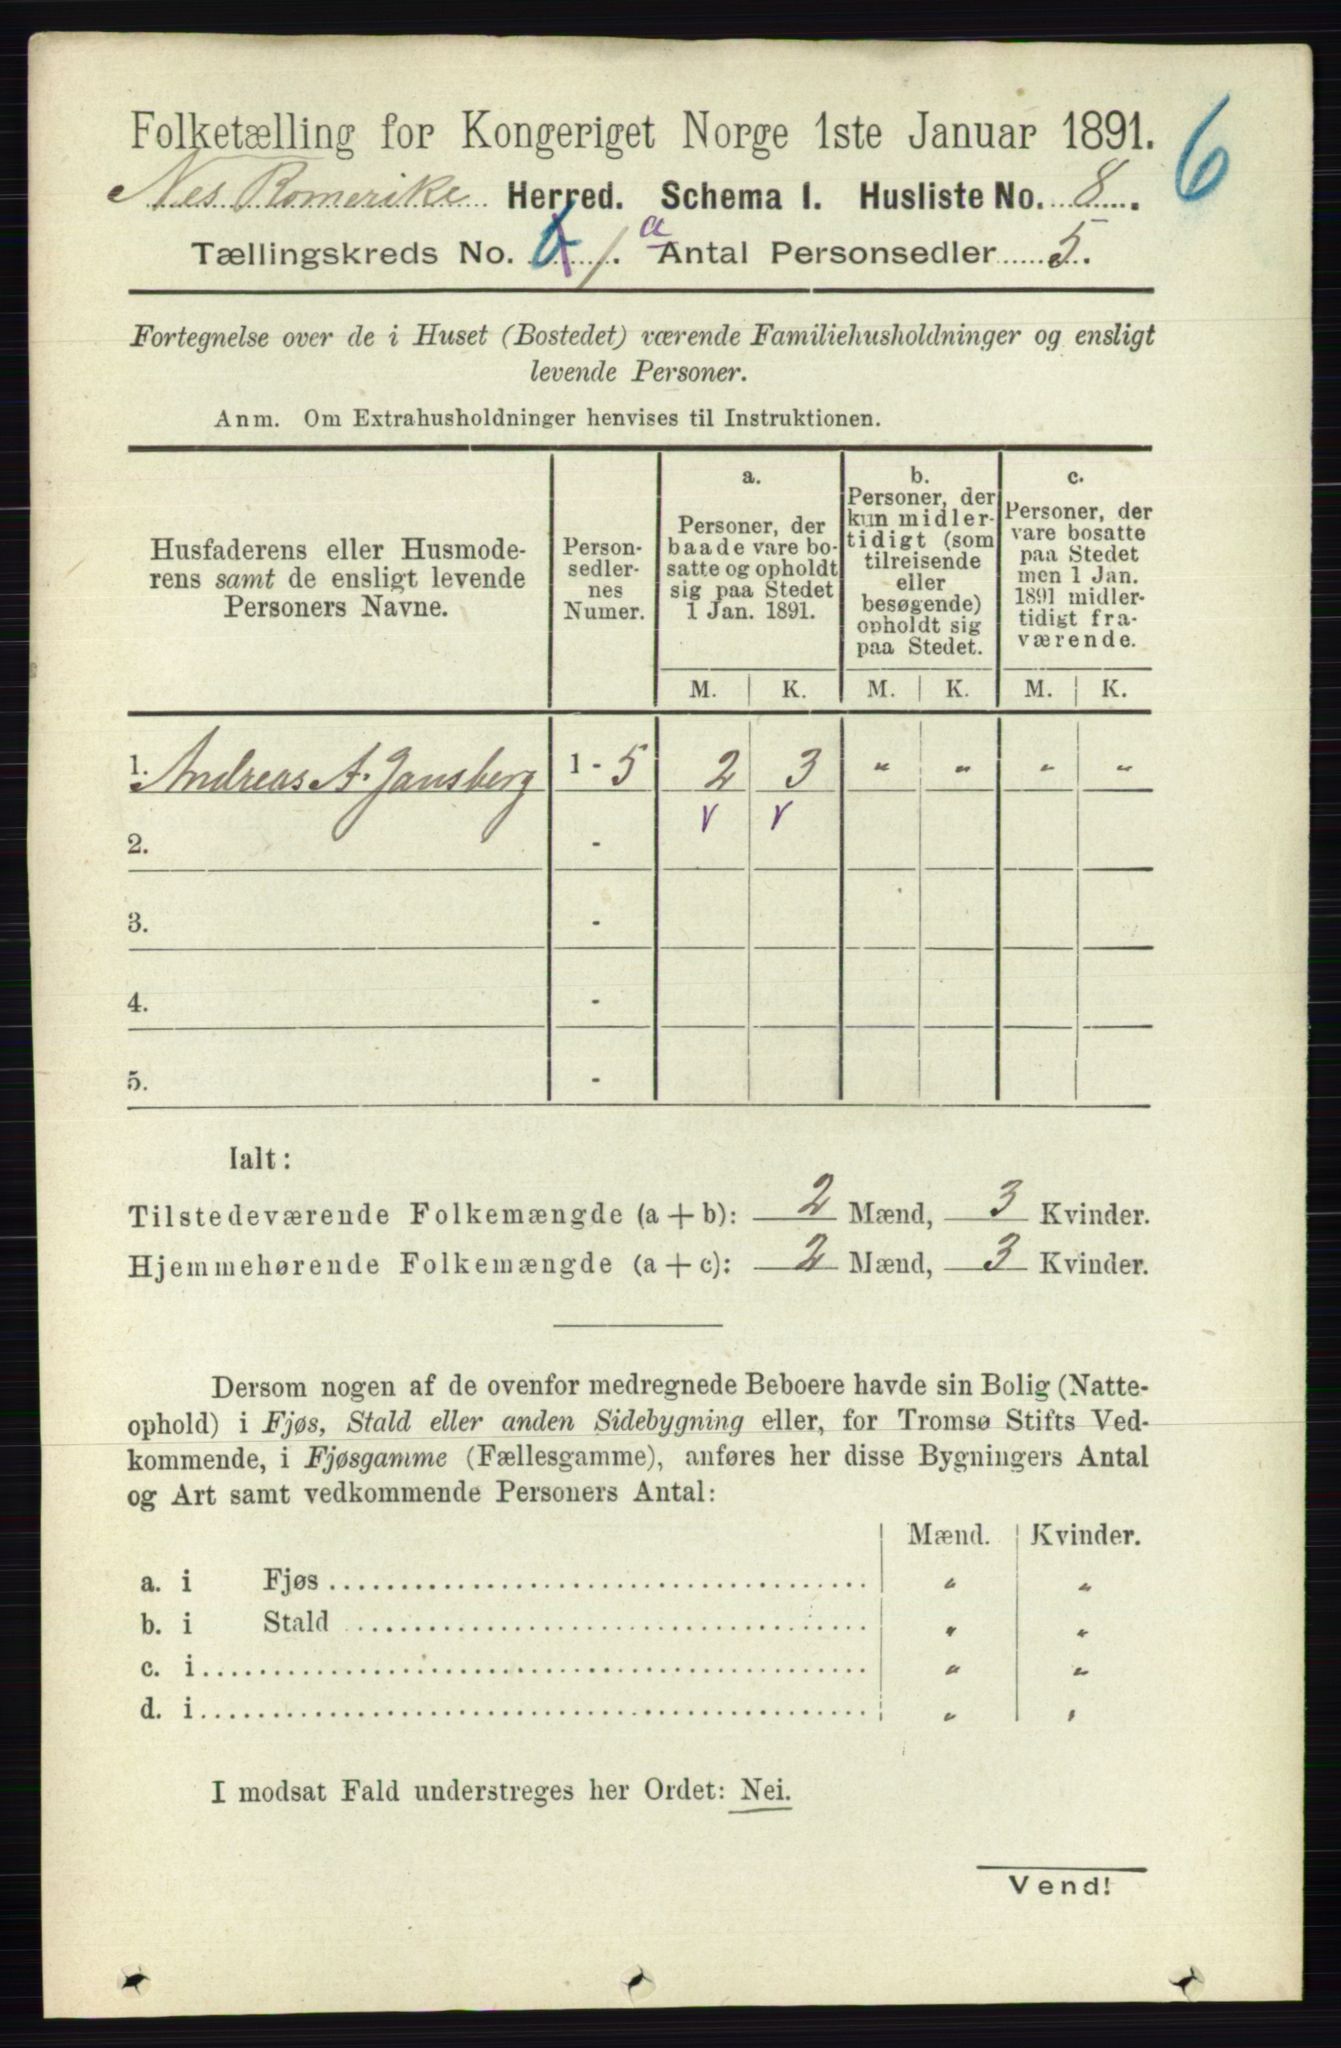 Folketælling for Kongeriget Norge 1ste Januar 1891.
6
Nes Romerike Herred. Schema I. Husliste No. 8.
Tællingskreds No. 6 1. a Antal Personsedler 5.
Fortegnelse over de i Huset (Bostedet) værende Familiehusholdninger og ensligt
levende Personer.
Anm. Om Extrahusholdninger henvises til Instruktionen.
Husfaderens eller Husmode-
rens samt de ensligt levende
Personers Navne.
Person-
sedler-
nes
Numer.
a.
Personer, der
baade vare bo-
satte og opholdt
sig paa Stedet
1 Jan. 1891.
b.
Personer, der
kun midler-
tidigt (som
tilreisende
eller
besøgende)
opholdt sig
paa Stedet.
c.
Personer, der
vare bosatte
paa Stedet
men 1 Jan.
1891 midler-
tidigt fra-
værende.
M. K. M. K. M. K.
1. Andreas A. Jansberg 1 - 5 2 3 " " " "
2. -
3. -
4. -
5. -
Ialt:
Tilstedeværende Folkemængde (a + b): 2 Mænd, 3 Kvinder.
Hjemmehørende Folkemængde (a + c): 2 Mænd, 3 Kvinder.
Dersom nogen af de ovenfor medregnede Beboere havde sin Bolig (Natte-
ophold) i Fjøs, Stald eller anden Sidebygning eller, for Tromsø Stifts Ved-
kommende, i Fjøsgamme (Fællesgamme), anføres her disse Bygningers Antal
og Art samt vedkommende Personers Antal:
Mænd. Kvinder.
a. i Fjøs " "
b. i Stald " "
c. i " "
d. i " "
I modsat Fald understreges her Ordet: Nei.
Vend!